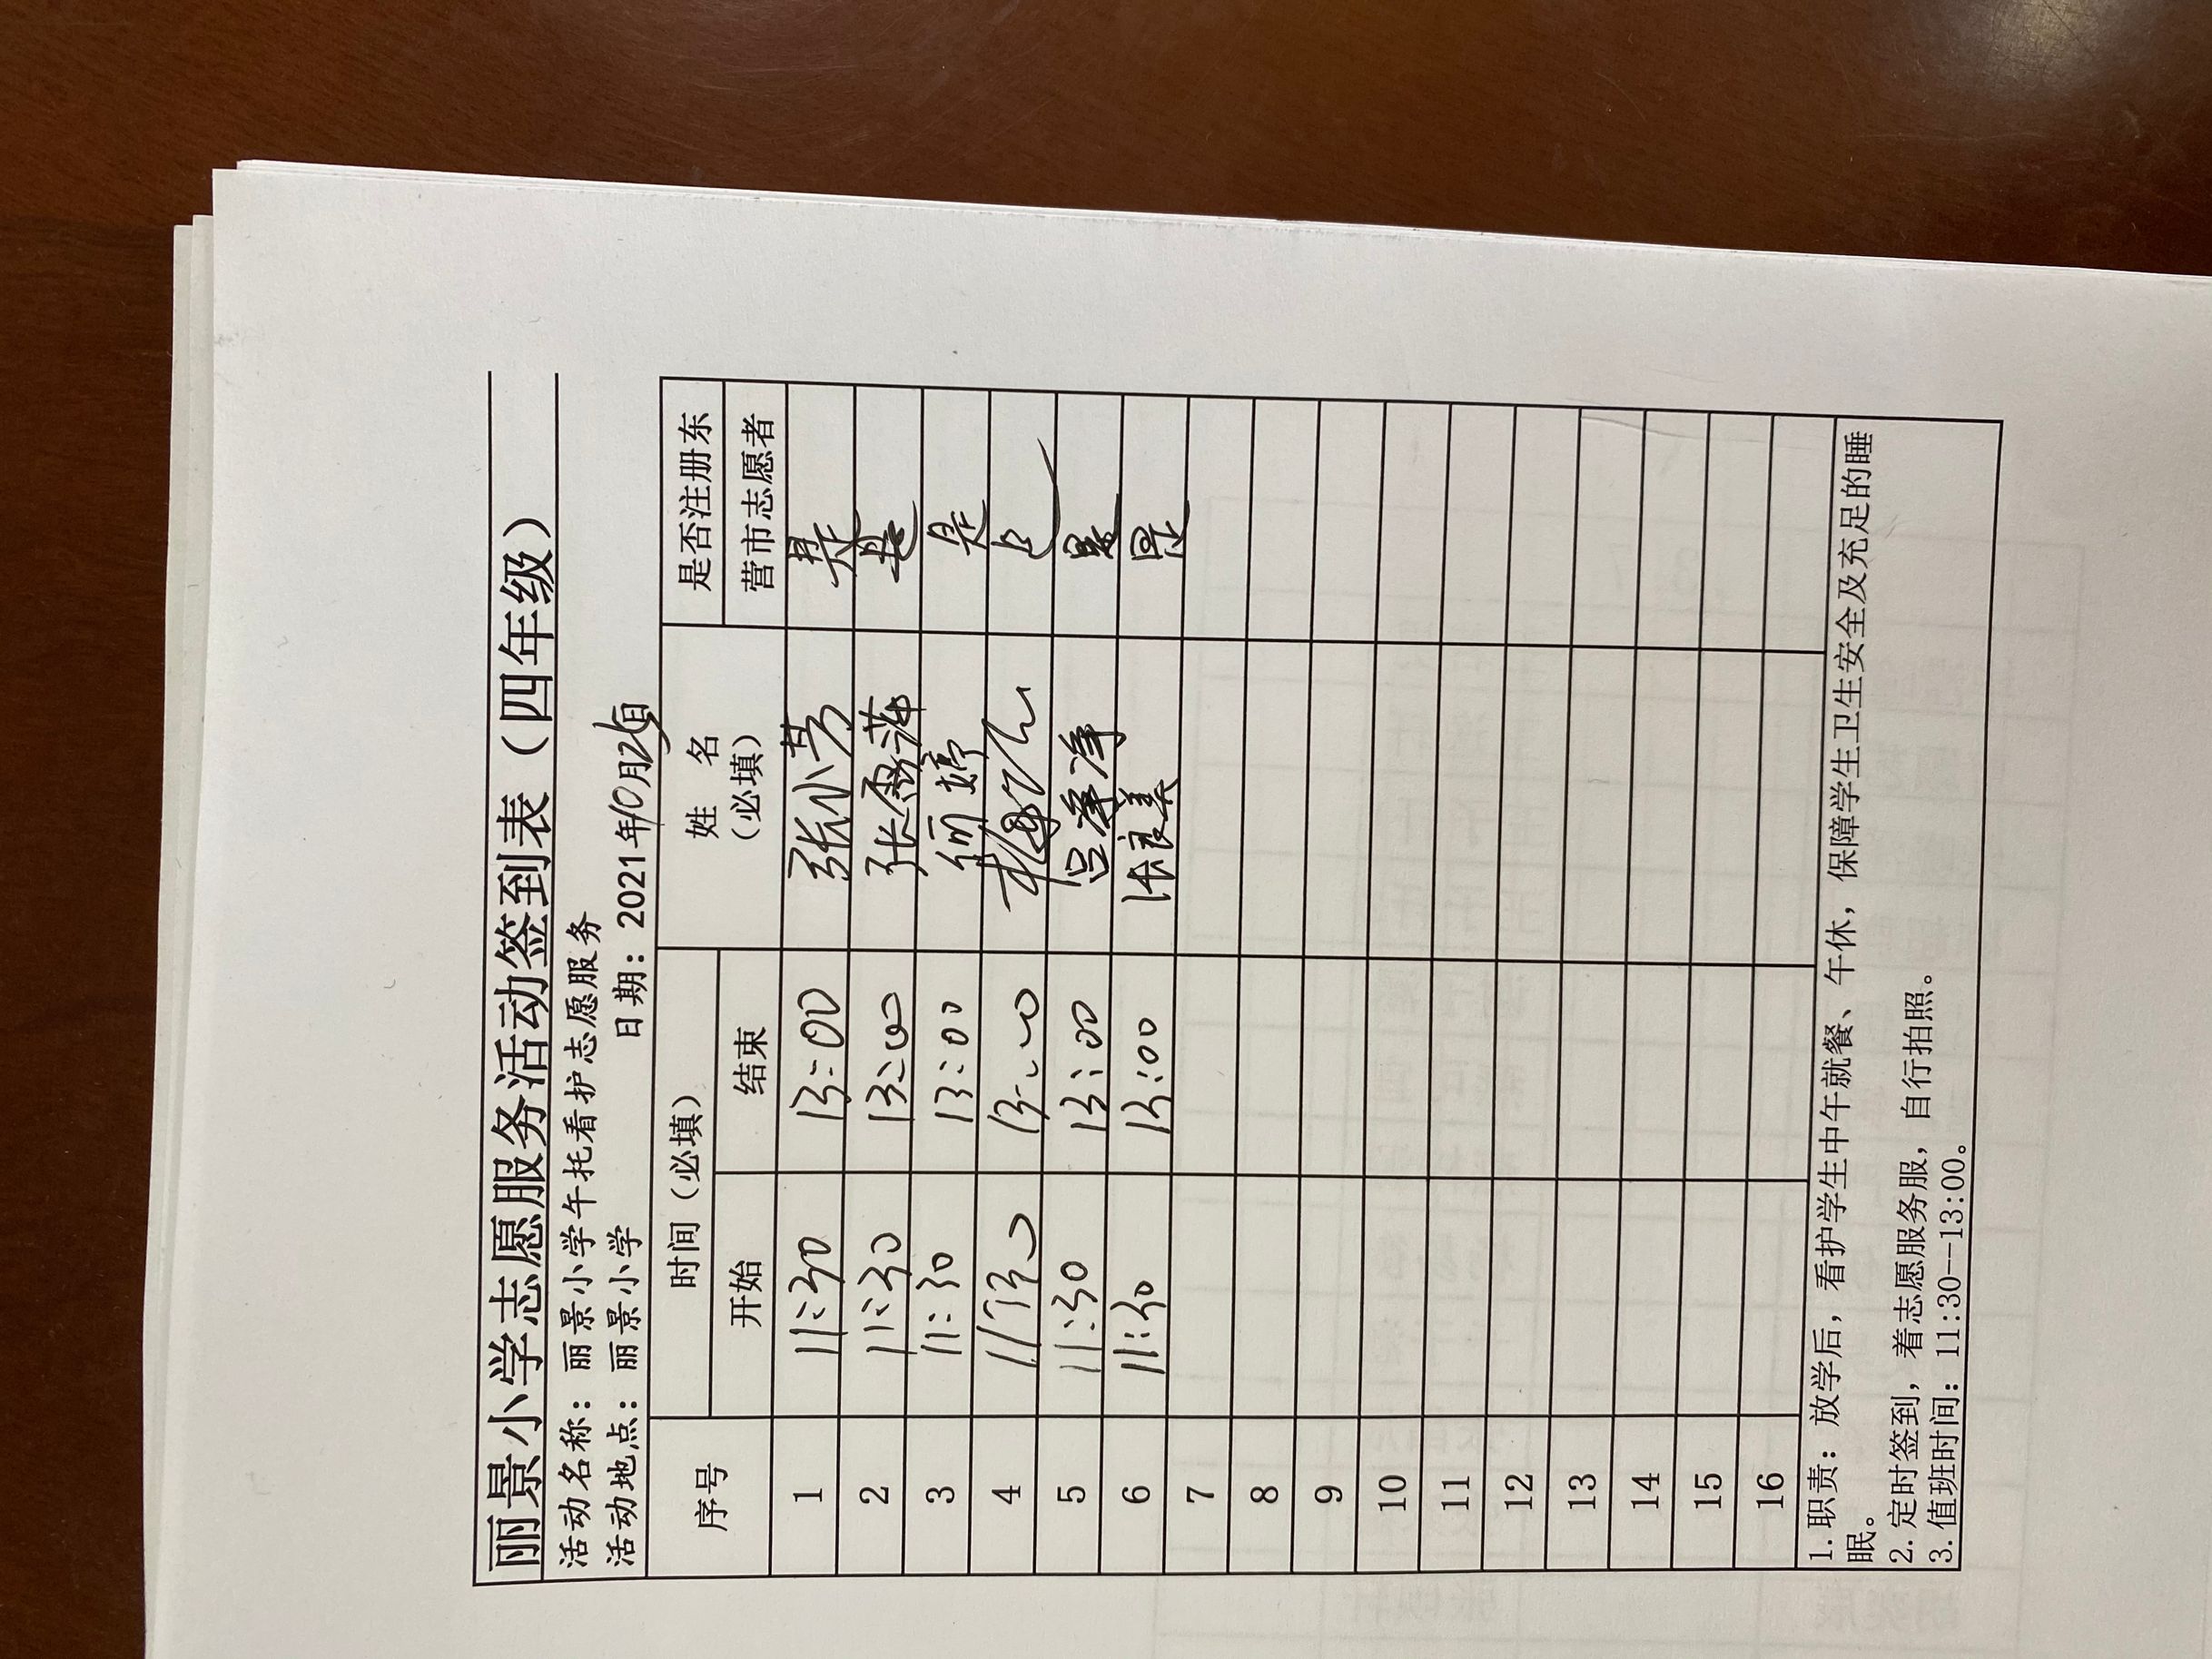 丽景小学志愿服务活动签到表（四年级）
活动名称：丽景小学午托看护志愿服务
活动地点：丽景小学 日期：2021年10月26日
序号 时间（必填） 姓 名（必填） 是否注册东营市志愿者
开始 结束
1 11:30 13:00 张小芳 是
2 11:30 13:00 张 萍 是
3 11:30 13:00 何婷 是
4 11:30 13:00 梅 是
5 11:30 13:00 吕净净 是
6 11:30 13:00 张良美 是
7
8
9
10
11
12
13
14
15
16
1.职责：放学后，看护学生中午就餐、午休，保障学生卫生安全及充足的睡
眠。
2.定时签到，着志愿服务服，自行拍照。
3.值班时间：11:30--13:00。